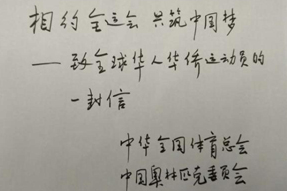 相约全运会 共筑中国梦
——致全球华人华侨运动员的
一封信
中华全国体育总会
中国奥林匹克委员会